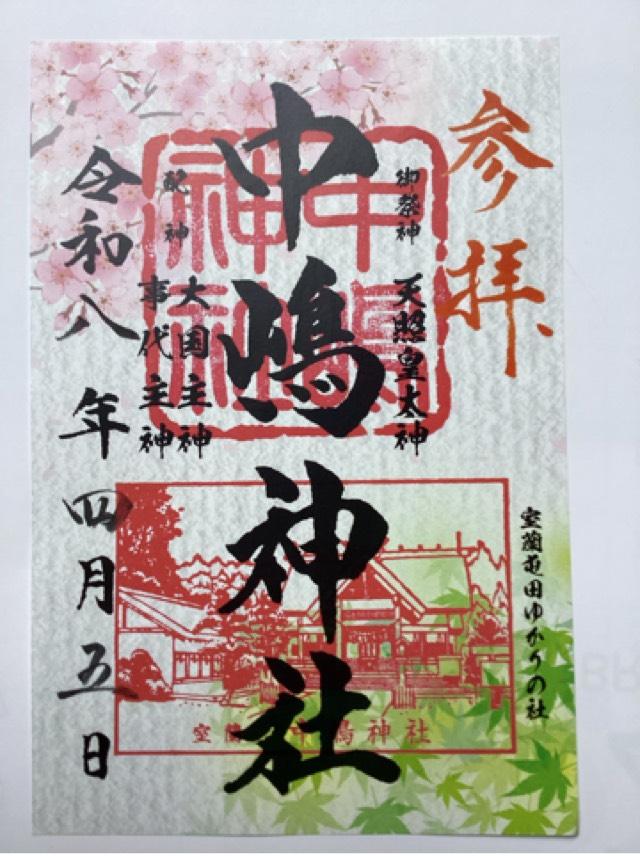 参拝
室蘭屯田ゆかりの社
御祭神 天照皇大神
中嶋神社
中嶋神社
配神 大国主神
事代主神
令和八年四月五日
室蘭 中嶋神社